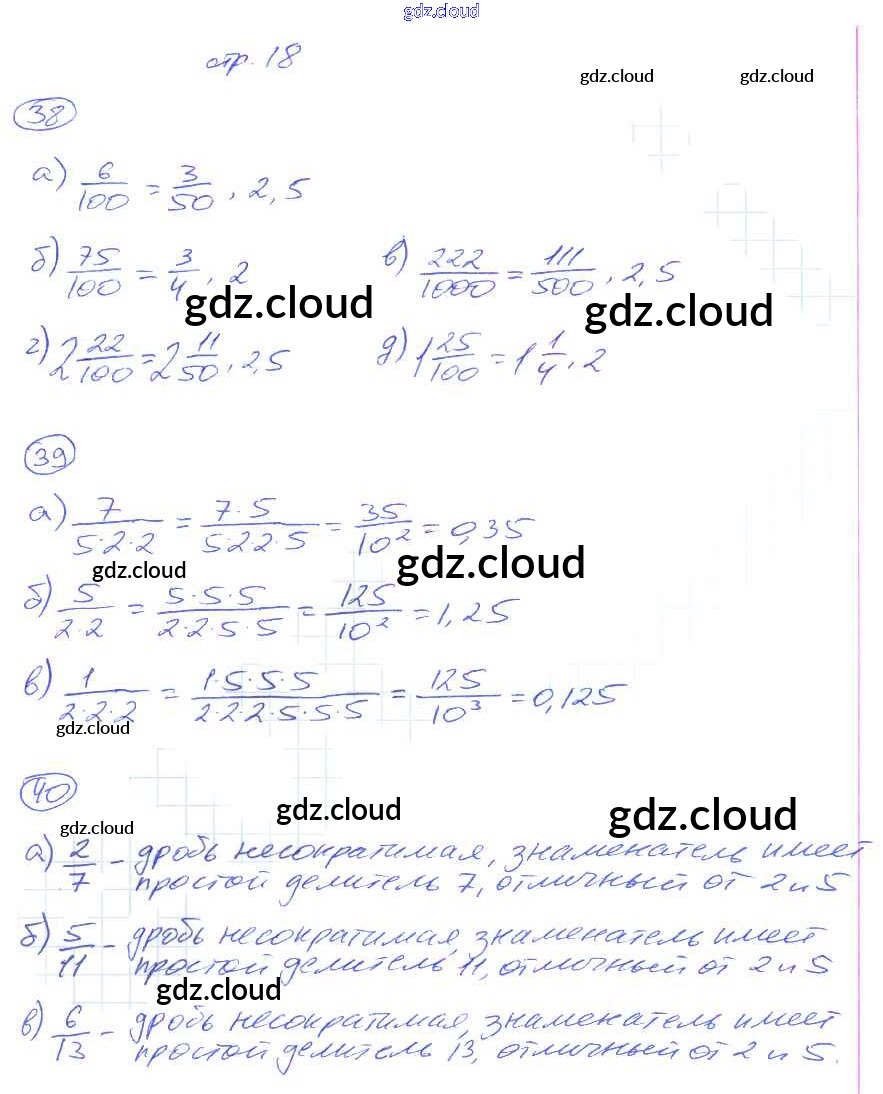 gdz.cloud
стр. 18
gdz.cloud gdz.cloud
38
а) 6/100 = 3/50, 2,5
б) 75/100 = 3/4, 2 в) 222/1000 = 111/500, 2,5
gdz.cloud gdz.cloud
г) 2 22/100 = 2 11/50, 2,5 д) 1 25/100 = 1 1/4, 2
39
а) 7/(5·2·2) = (7·5)/(5·2·2·5) = 35/10² = 0,35
gdz.cloud gdz.cloud
б) 5/(2·2) = (5·5·5)/(2·2·5·5) = 125/10² = 1,25
в) 1/(2·2·2) = (1·5·5·5)/(2·2·2·5·5·5) = 125/10³ = 0,125
gdz.cloud
40
gdz.cloud gdz.cloud
gdz.cloud
а) 2/7 - дробь несократимая, знаменатель имеет
простой делитель 7, отличный от 2 и 5
б) 5/11 - дробь несократимая, знаменатель имеет
простой делитель 11, отличный от 2 и 5
gdz.cloud
в) 6/13 - дробь несократимая, знаменатель имеет
простой делитель 13, отличный от 2 и 5.